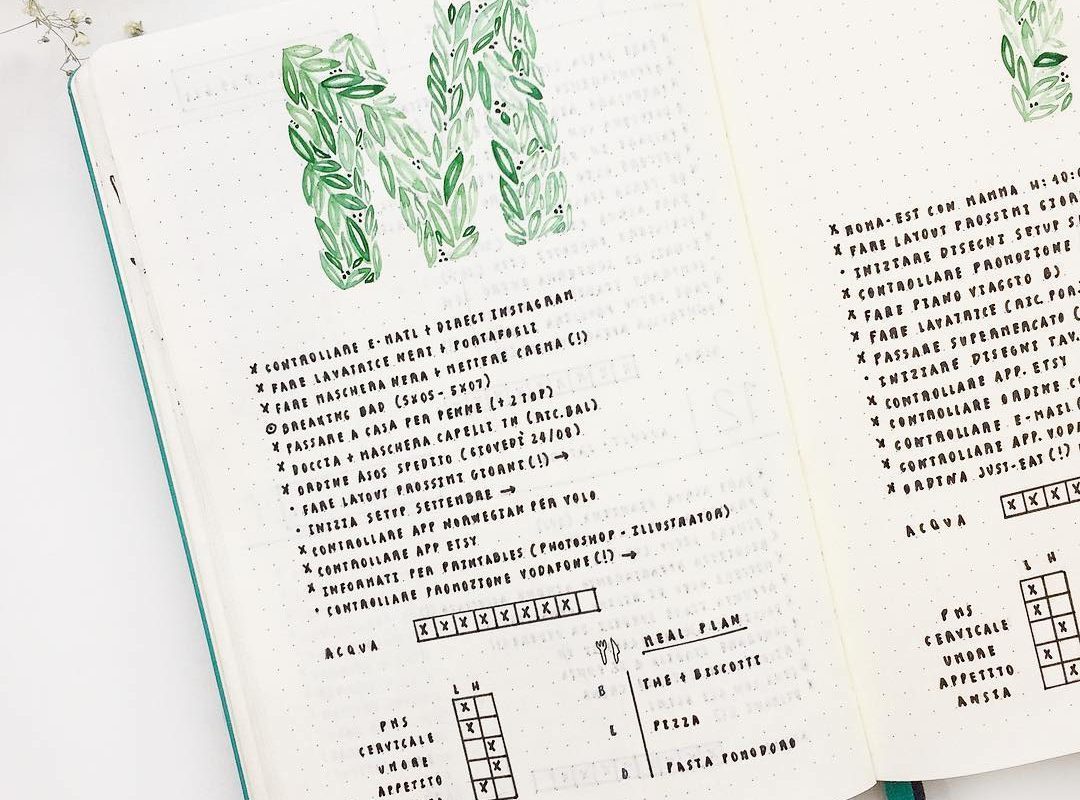 M
x CONTROLLARE E-MAIL + DIRECT INSTAGRAM
x FARE LAVATRICE NERI + PORTAFOGLI
x FARE MASCHERA NERA + METTERE CREMA (!)
BREAKING BAD (5X05 - 5X07)
x PASSARE A CASA PER PENNE (+ 2 TOP)
x DOCCIA + MASCHERA CAPELLI TN (RIC. BAL)
x ORDINE ASOS SPEDITO (GIOVEDÌ 24/08)
• FARE LAYOUT PROSSIMI GIORNI (!) →
• INIZIA SETUP SETTEMBRE →
x CONTROLLARE APP NORWEGIAN PER VOLO
x CONTROLLARE APP ETSY
x INFORMATI PER PRINTABLES (PHOTOSHOP - ILLUSTRATOR)
• CONTROLLARE PROMOZIONE VODAFONE (!) →
ACQUA X X X X X X X X
L H
PMS X
CERVICALE X
UMORE X
APPETITO X
X
MEAL PLAN
B THE + BISCOTTI
L PIZZA
D PASTA POMODORO
x ROMA-EST CON MAMMA H: 10:
x FARE LAYOUT PROSSIMI
• INIZIARE DISEGNI SETUP
x CONTROLLARE PROMOZIONE
x FARE PIANO VIAGGIO 8)
x FARE LAVATRICE (RIC.
x PASSARE SUPERMERCATO (
• INIZIARE DISEGNI
x CONTROLLARE APP. ETSY
x CONTROLLARE ORDINE
x CONTROLLARE E-MAIL
x CONTROLLARE APP.
x ORDINA JUST-EAT (!)
ACQUA X X X X
L H
PMS X
CERVICALE X
UMORE X
APPETITO X
ANSIA X